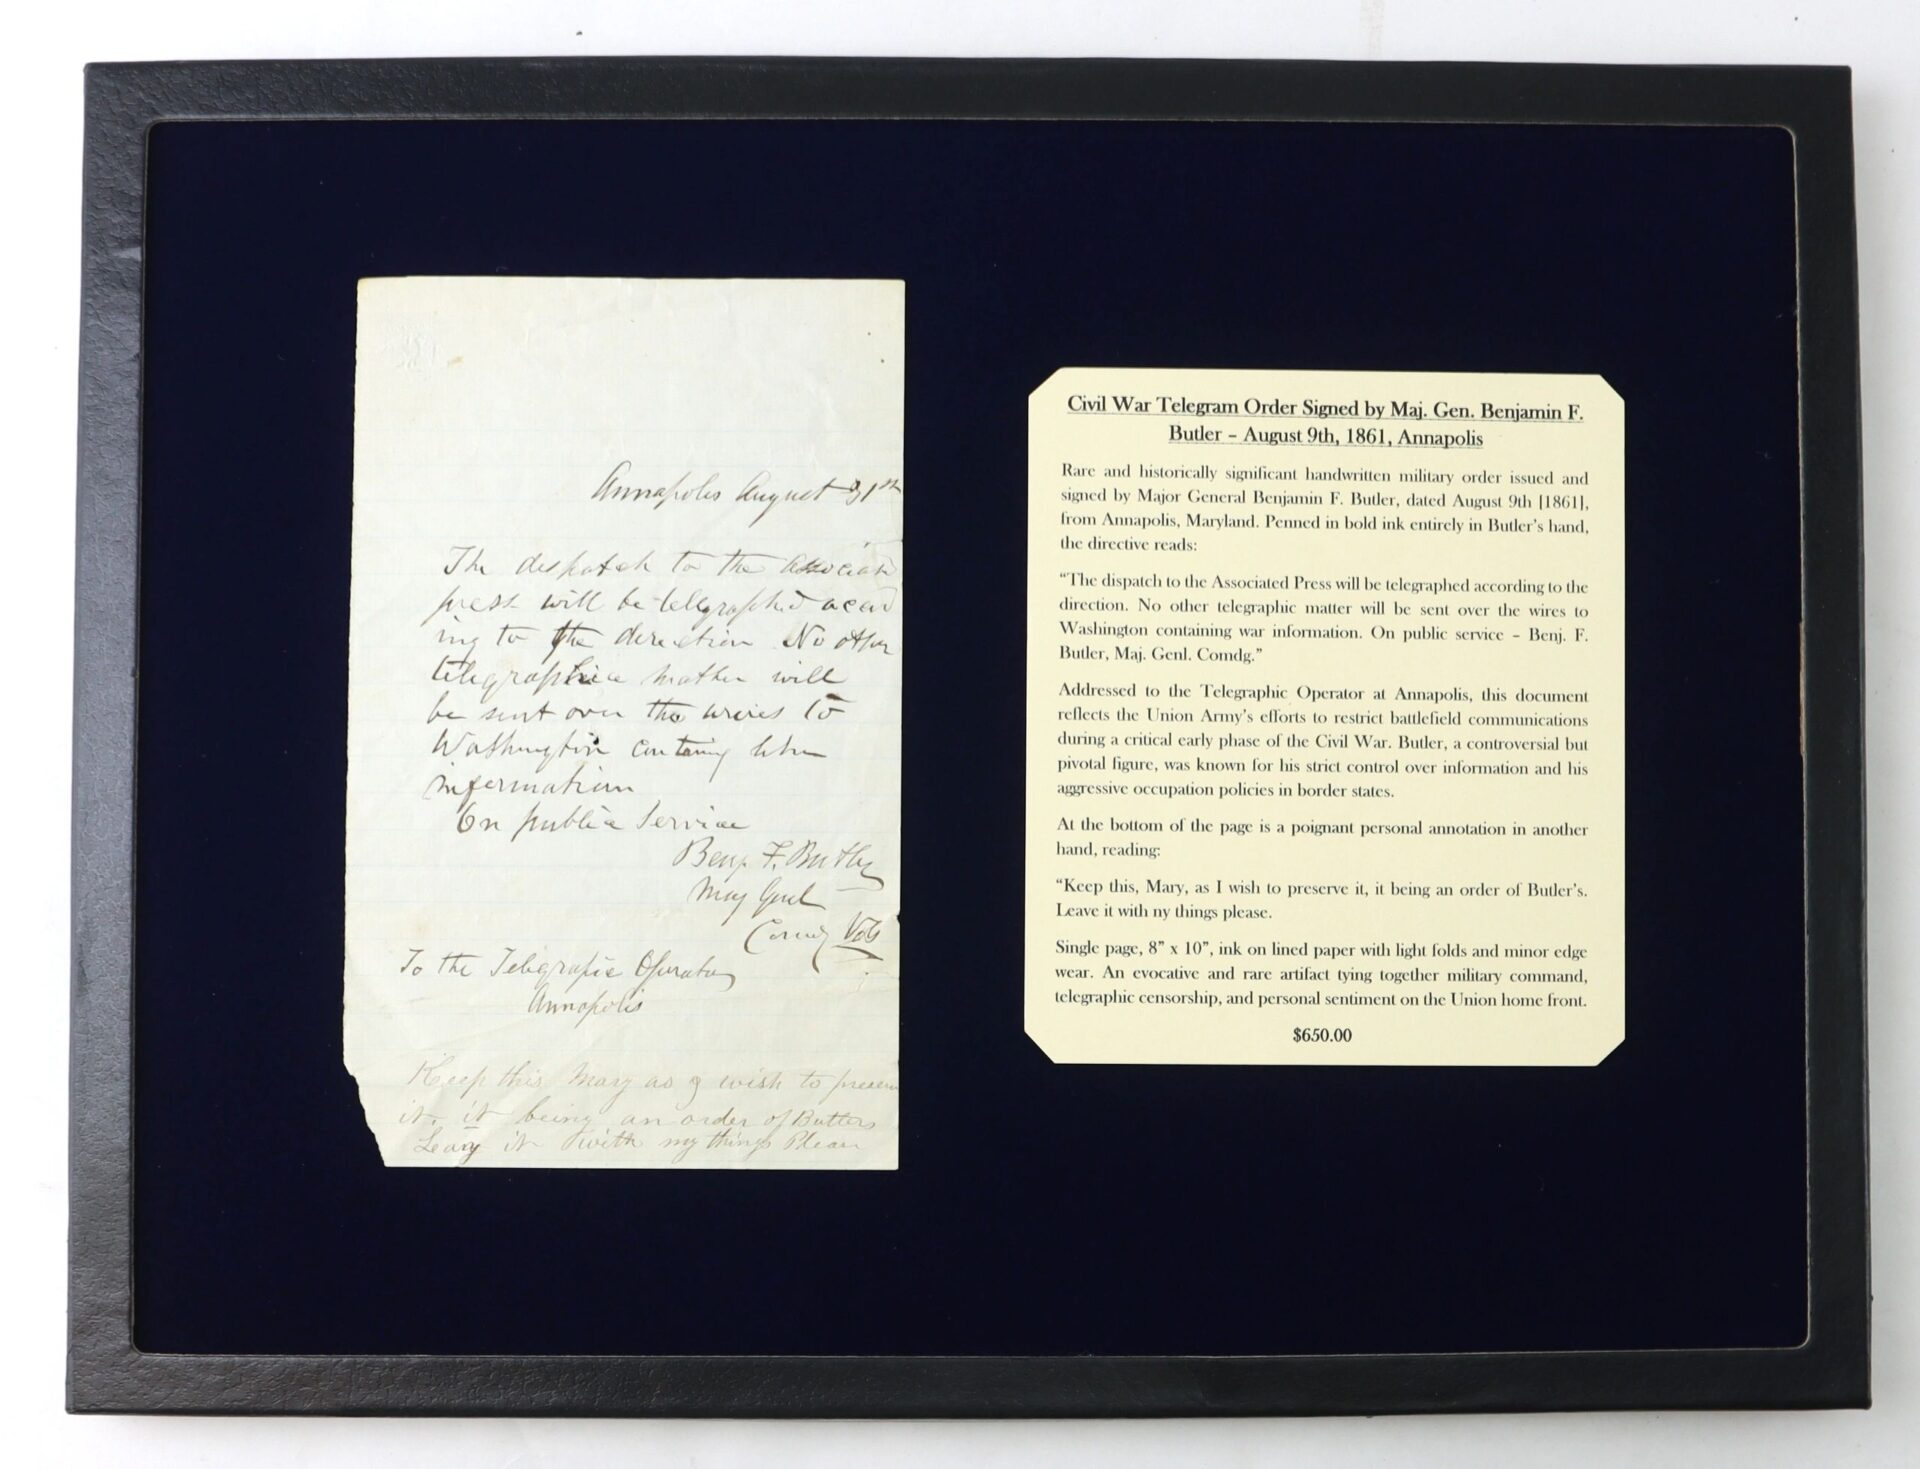 Annapolis August 31st
The dispatch to the associated
press will be telegraphed accord
ing to the direction No other
telegraphic matter will
be sent over the wires to
Washington containing
information
On public service
Benj. F. Butler
Maj Genl
Comdg Vols
To the Telegrafic Operator
Annapolis
Keep this Mary as I wish to preserve
it, it being an order of Butlers
Leave it with my things Please
Civil War Telegram Order Signed by Maj. Gen. Benjamin F.
Butler – August 9th, 1861, Annapolis
Rare and historically significant handwritten military order issued and
signed by Major General Benjamin F. Butler, dated August 9th [1861],
from Annapolis, Maryland. Penned in bold ink entirely in Butler's hand,
the directive reads:
“The dispatch to the Associated Press will be telegraphed according to the
direction. No other telegraphic matter will be sent over the wires to
Washington containing war information. On public service – Benj. F.
Butler, Maj. Genl. Comdg.”
Addressed to the Telegraphic Operator at Annapolis, this document
reflects the Union Army's efforts to restrict battlefield communications
during a critical early phase of the Civil War. Butler, a controversial but
pivotal figure, was known for his strict control over information and his
aggressive occupation policies in border states.
At the bottom of the page is a poignant personal annotation in another
hand, reading:
“Keep this, Mary, as I wish to preserve it, it being an order of Butler's.
Leave it with ny things please.
Single page, 8” x 10”, ink on lined paper with light folds and minor edge
wear. An evocative and rare artifact tying together military command,
telegraphic censorship, and personal sentiment on the Union home front.
$650.00